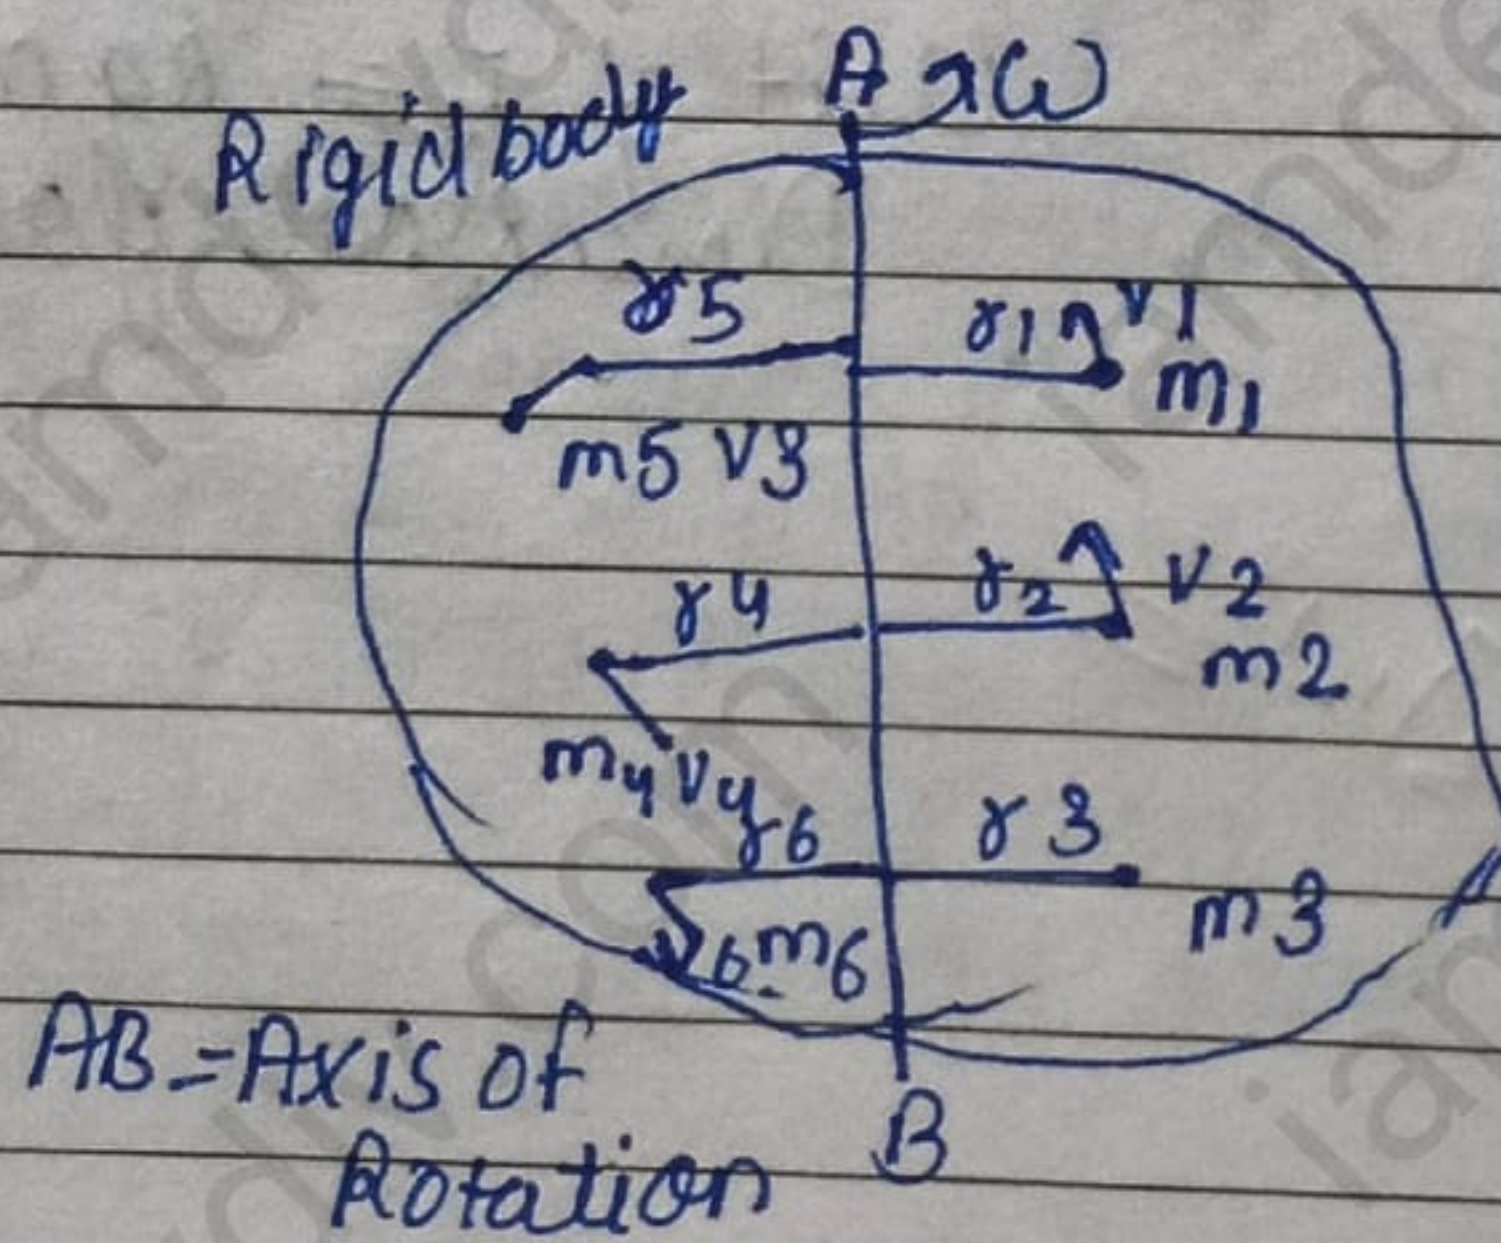 A ω
Rigid body
r5
r1 v1
m1
m5 v3
r4
r2 v2
m2
m4 v4
r6
r3
m3
m6
AB = Axis of
Rotation
B